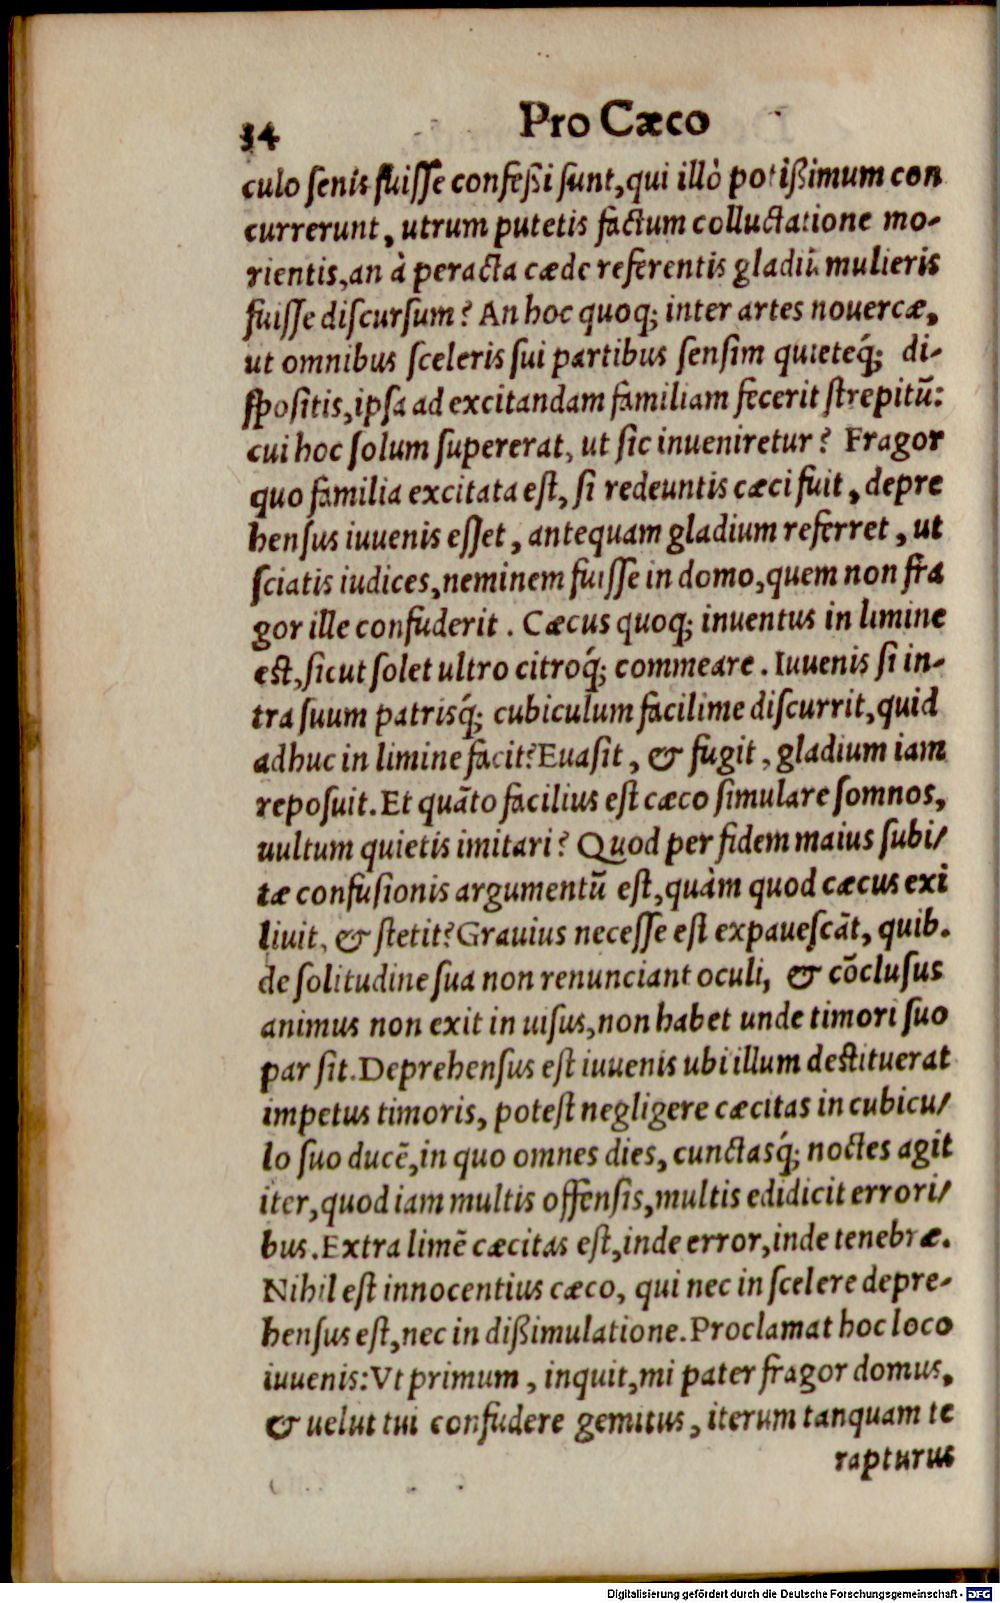 34
Pro Cæco
culo senis fuisse confeßi sunt, qui illò potißimum con
currerunt, utrum putetis factum colluctatione mo-
rientis, an à peracta cæde referentis gladiū mulieris
fuisse discursum? An hoc quoq; inter artes nouercæ,
ut omnibus sceleris sui partibus sensim quieteq́; di-
spositis, ipsa ad excitandam familiam fecerit strepitū:
cui hoc solum supererat, ut sic inueniretur? Fragor
quo familia excitata est, si redeuntis cæci fuit, depre
hensus iuuenis esset, antequam gladium referret, ut
sciatis iudices, neminem fuisse in domo, quem non fra
gor ille confuderit. Cæcus quoq; inuentus in limine
est, sicut solet ultro citroq́; commeare. Iuuenis si in-
tra suum patrisq́; cubiculum facilime discurrit, quid
adhuc in limine facit? Euasit, & fugit, gladium iam
reposuit. Et quāto facilius est cæco simulare somnos,
uultum quietis imitari? Quod per fidem maius subi/
tæ confusionis argumentū est, quàm quod cæcus exi
liuit, & stetit? Grauius necesse est expauescāt, quib.
de solitudine sua non renunciant oculi, & cōclusus
animus non exit in uisus, non habet unde timori suo
par sit. Deprehensus est iuuenis ubi illum destituerat
impetus timoris, potest negligere cæcitas in cubicu/
lo suo ducē, in quo omnes dies, cunctasq́; noctes agit
iter, quod iam multis offensis, multis edidicit errori/
bus. Extra limē cæcitas est, inde error, inde tenebræ.
Nihil est innocentius cæco, qui nec in scelere depre-
hensus est, nec in dißimulatione. Proclamat hoc loco
iuuenis: Vt primum, inquit, mi pater fragor domus,
& uelut tui confudere gemitus, iterum tanquam te
rapturus
Digitalisierung gefördert durch die Deutsche Forschungsgemeinschaft - DFG